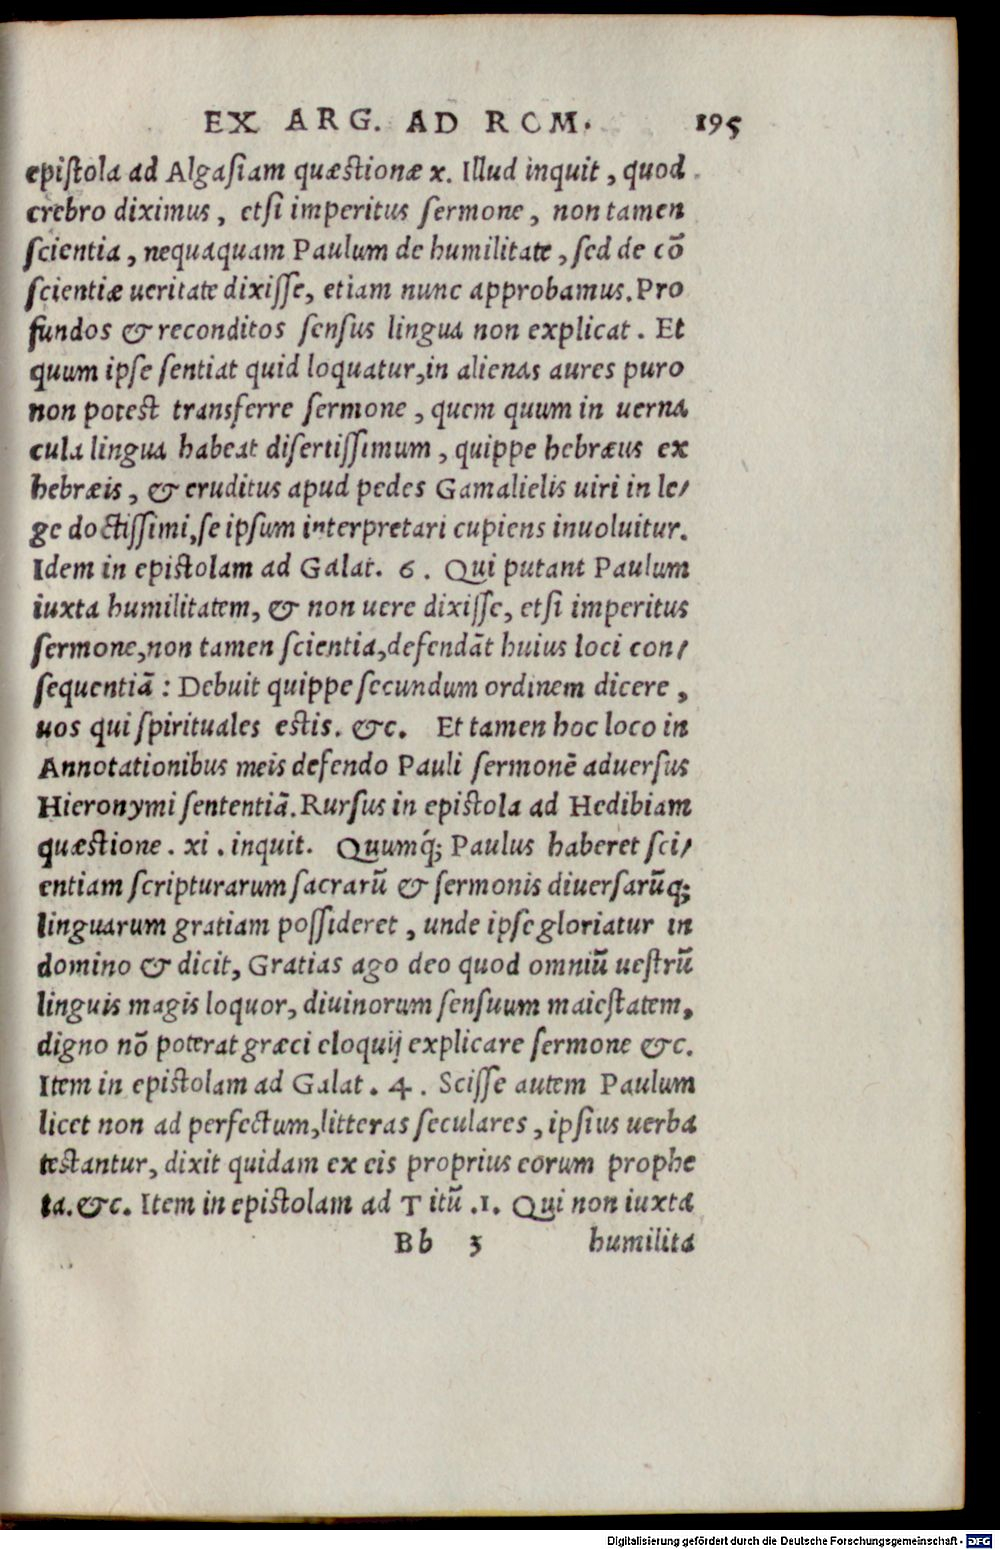 EX ARG. AD ROM. 195
epiſtola ad Algaſiam quæſtionæ x. Illud inquit, quod
crebro diximus, etſi imperitus ſermone, non tamen
ſcientia, nequaquam Paulum de humilitate, ſed de cō
ſcientiæ ueritate dixiſſe, etiam nunc approbamus. Pro
fundos & reconditos ſenſus lingua non explicat. Et
quum ipſe ſentiat quid loquatur, in alienas aures puro
non poteſt tranſferre ſermone, quem quum in uerna
cula lingua habeat diſertiſſimum, quippe hebræus ex
hebræis, & eruditus apud pedes Gamalielis uiri in le/
ge doctiſſimi, ſe ipſum interpretari cupiens inuoluitur.
Idem in epiſtolam ad Galat. 6. Qui putant Paulum
iuxta humilitatem, & non uere dixiſſe, etſi imperitus
ſermone, non tamen ſcientia, defendāt huius loci con/
ſequentiā: Debuit quippe ſecundum ordinem dicere,
uos qui ſpirituales eſtis. &c. Et tamen hoc loco in
Annotationibus meis defendo Pauli ſermonē aduerſus
Hieronymi ſententiā. Rurſus in epiſtola ad Hedibiam
quæſtione. xi. inquit. Quumq́; Paulus haberet ſci/
entiam ſcripturarum ſacrarū & ſermonis diuerſarūq;
linguarum gratiam poſſideret, unde ipſe gloriatur in
domino & dicit, Gratias ago deo quod omniū ueſtrū
linguis magis loquor, diuinorum ſenſuum maieſtatem,
digno nō poterat græci eloquij explicare ſermone &c.
Item in epiſtolam ad Galat. 4. Sciſſe autem Paulum
licet non ad perfectum, litteras ſeculares, ipſius uerba
teſtantur, dixit quidam ex eis proprius eorum prophe
ta. &c. Item in epiſtolam ad Titū .1. Qui non iuxta
Bb 3 humilita
Digitalisierung gefördert durch die Deutsche Forschungsgemeinschaft - DFG